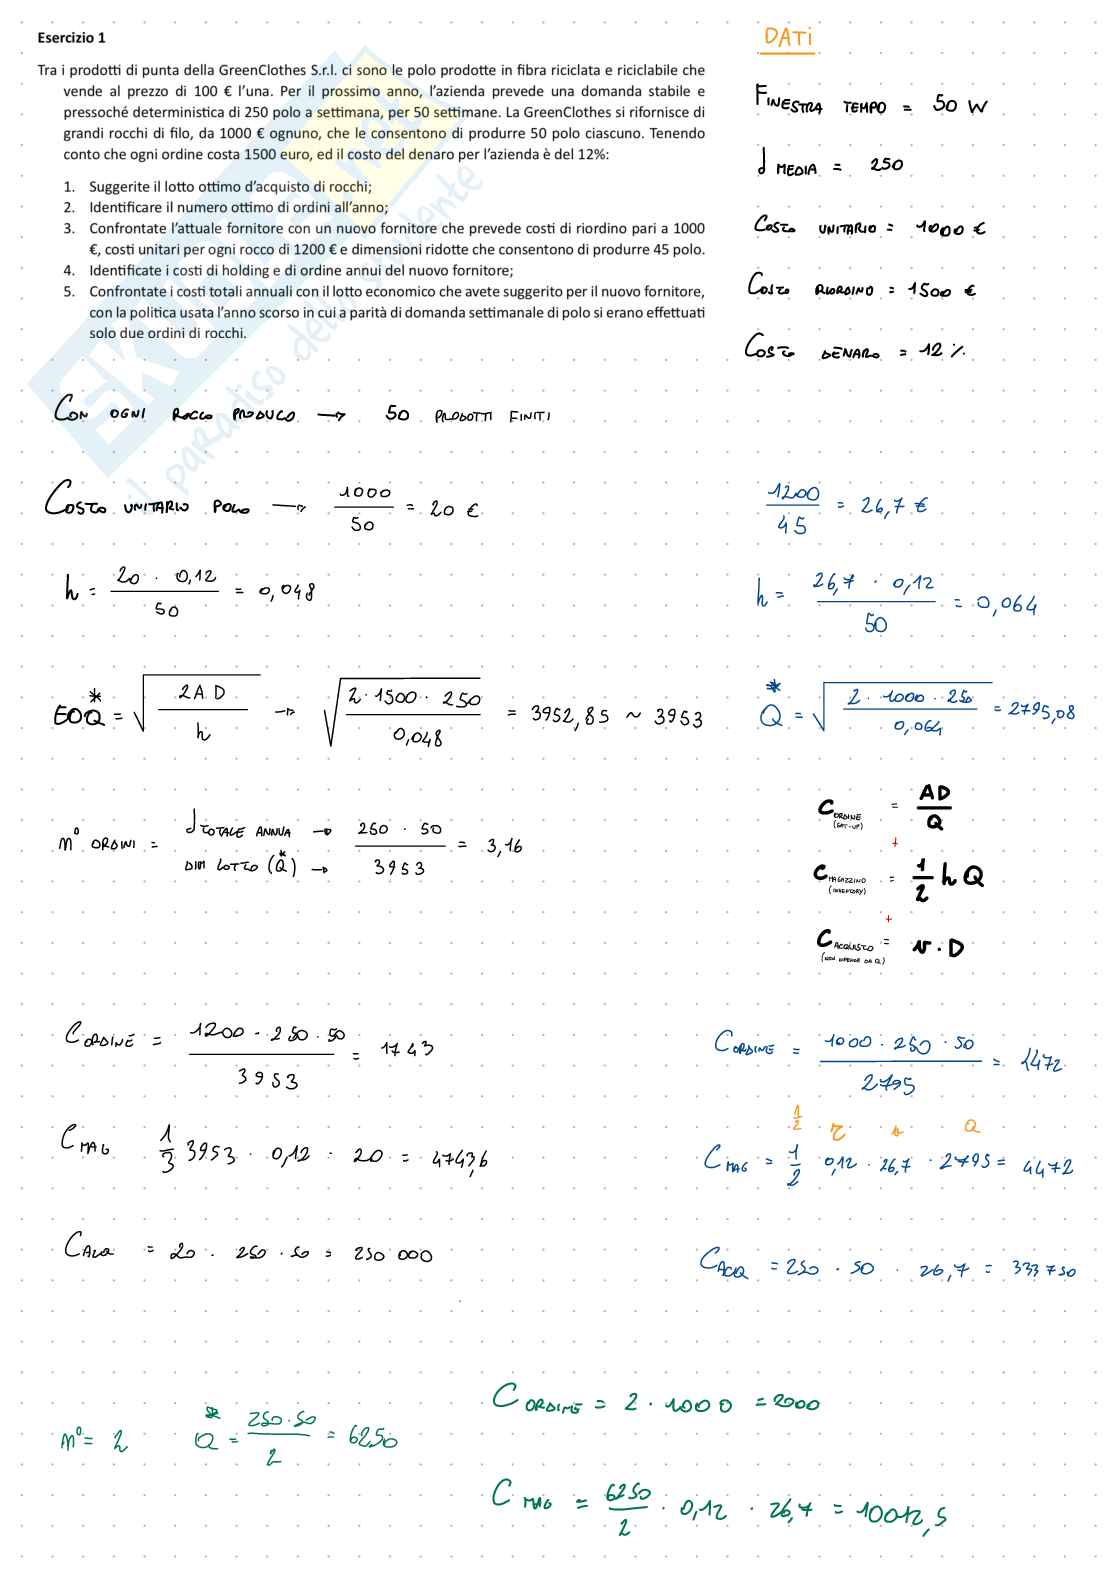 Esercizio 1
Tra i prodotti di punta della GreenClothes S.r.l. ci sono le polo prodotte in fibra riciclata e riciclabile che
vende al prezzo di 100 € l'una. Per il prossimo anno, l'azienda prevede una domanda stabile e
pressoché deterministica di 250 polo a settimana, per 50 settimane. La GreenClothes si rifornisce di
grandi rocchi di filo, da 1000 € ognuno, che le consentono di produrre 50 polo ciascuno. Tenendo
conto che ogni ordine costa 1500 euro, ed il costo del denaro per l'azienda è del 12%:
1. Suggerite il lotto ottimo d'acquisto di rocchi;
2. Identificare il numero ottimo di ordini all'anno;
3. Confrontate l'attuale fornitore con un nuovo fornitore che prevede costi di riordino pari a 1000
€, costi unitari per ogni rocco di 1200 € e dimensioni ridotte che consentono di produrre 45 polo.
4. Identificate i costi di holding e di ordine annui del nuovo fornitore;
5. Confrontate i costi totali annuali con il lotto economico che avete suggerito per il nuovo fornitore,
con la politica usata l'anno scorso in cui a parità di domanda settimanale di polo si erano effettuati
solo due ordini di rocchi.
DATi
FINESTRA TEMPO = 50 W
d MEDIA = 250
COSTO UNITARIO = 1000 €
COSTO RIORDINO = 1500 €
COSTO DENARO = 12 %
skuola.net
il paradiso dello studente
CON OGNI ROCCO PRODUCO → 50 PRODOTTI FINITI
COSTO UNITARIO POLO → 1000 / 50 = 20 €
1200 / 45 = 26,7 €
h = 20 · 0,12 / 50 = 0,048
h = 26,7 · 0,12 / 50 = 0,064
EOQ* = √ 2 A D / h → √ 2 · 1500 · 250 / 0,048 = 3952,85 ~ 3953
Q* = √ 2 · 1000 · 250 / 0,064 = 2795,08
n° ORDINI = d TOTALE ANNUA → 250 · 50
DIM LOTTO (Q*) → 3953 = 3,16
C ORDINE (SET-UP) = AD / Q
+
C MAGAZZINO (INVENTORY) = 1/2 h Q
+
C ACQUISTO = v · D
(NON DIPENDE DA Q)
C ORDINE = 1200 · 250 · 50 / 3953 = 1743
C ORDINE = 1000 · 250 · 50 / 2795 = 4472
1/2 r v Q
C MAG 1/3 3953 · 0,12 · 20 = 4743,6
C MAG = 1/2 0,12 · 26,7 · 2795 = 4472
C ACQ = 20 · 250 · 50 = 250 000
C ACQ = 250 · 50 · 26,7 = 333 750
n° = 2 Q* = 250·50 / 2 = 6250
C ORDINE = 2 · 1000 = 2000
C MAG = 6250 / 2 · 0,12 · 26,7 = 10012,5